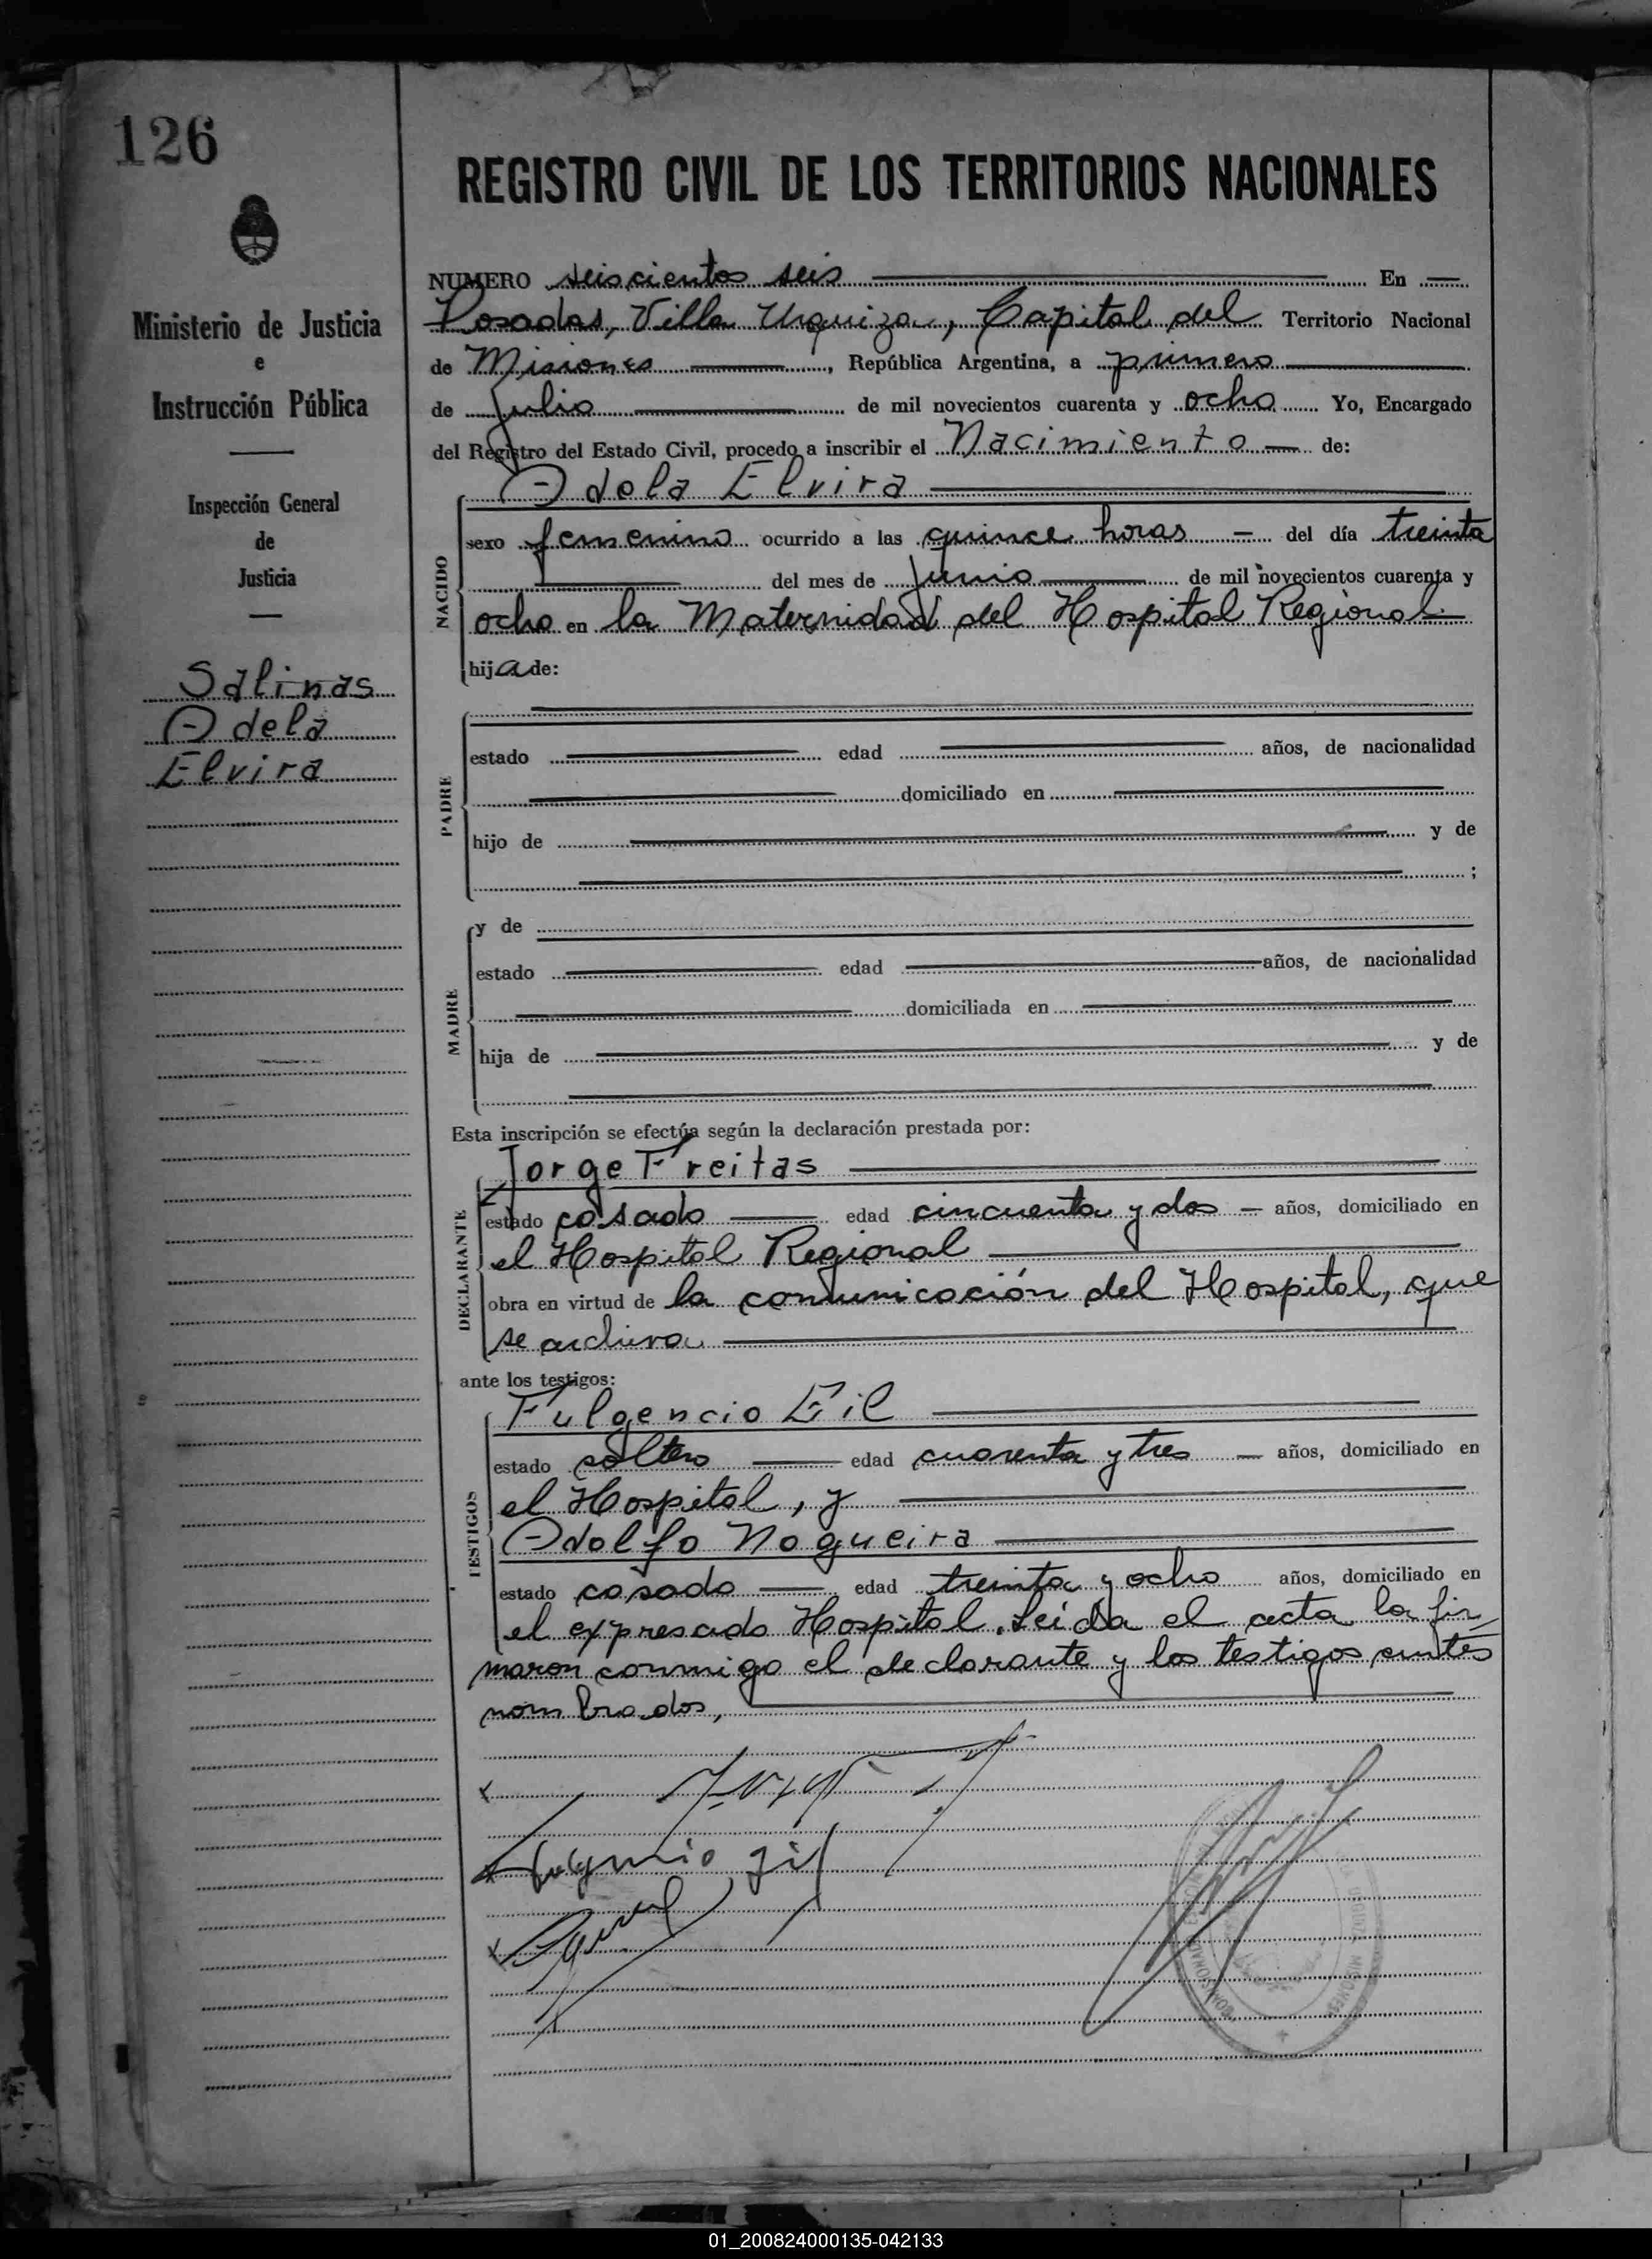 126
REGISTRO CIVIL DE LOS TERRITORIOS NACIONALES
Ministerio de Justicia
e
Instrucción Pública
Inspección General
de
Justicia
Salinas
Adela
Elvira
NUMERO seiscientos seis En
Posadas, Villa Urquiza, Capital del Territorio Nacional
de Misiones, República Argentina, a primero
de Julio de mil novecientos cuarenta y ocho Yo, Encargado
del Registro del Estado Civil, procedo a inscribir el Nacimiento de:
Adela Elvira
NACIDO
sexo femenino ocurrido a las quince horas del día treinta
del mes de junio de mil novecientos cuarenta y
ocho en la Maternidad del Hospital Regional
hija de:
PADRE
estado edad años, de nacionalidad
domiciliado en
hijo de y de
;
MADRE
y de
estado edad años, de nacionalidad
domiciliada en
hija de y de
Esta inscripción se efectúa según la declaración prestada por:
DECLARANTE
Jorge Freitas
estado casado edad cincuenta y dos años, domiciliado en
el Hospital Regional
obra en virtud de la comunicación del Hospital, que
se archiva
ante los testigos:
TESTIGOS
Fulgencio Gil
estado soltero edad cuarenta y tres años, domiciliado en
el Hospital, y
Adolfo Nogueira
estado casado edad treinta y ocho años, domiciliado en
el expresado Hospital. Leída el acta la fir
maron conmigo el declarante y los testigos antes
nombrados,
Fulgencio Gil
01_200824000135-042133